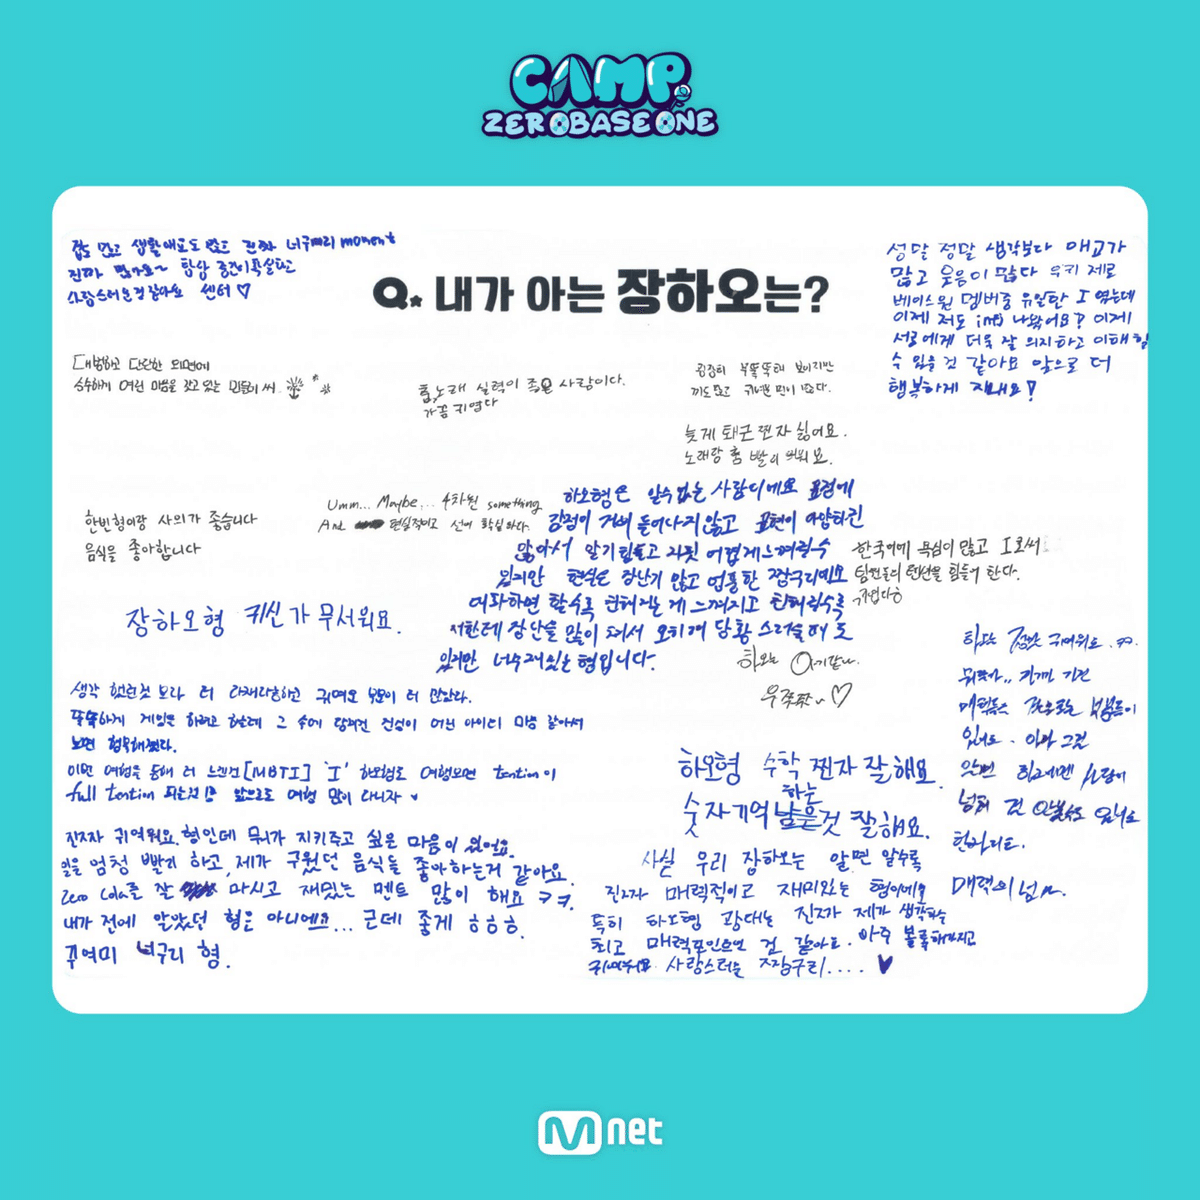 CAMP
ZEROBASEONE
진짜 많아요~ 항상
사랑스러운것 같아요 센터♡
Q. 내가 아는 장하오는?
정말 정말 생각보다 애교가
많고 웃음이 많다 우리 제로
베이스원 멤버중 유일한 I 였는데
이제 저도 infj 나왔어요? 이제
서로에게 더욱 잘 의지하고 이해할
수 있을 것 같아요 앞으로 더
행복하게 지내요!
냉철하고 단단한 외면에
순수하게 여린 마음을 갖고 있는
춤, 노래 실력이 좋은 사람이다.
가끔 귀엽다
굉장히 뚝뚝해 보이지만
끼도많고 귀여운 면이 많다.
늦게 퇴근 진짜 싫어요.
노래랑 춤 빨리 배워요.
한빈형이랑 사이가 좋습니다
음식을 좋아합니다
Umm... Maybe... 4차원 something
And 현실적이고 선이 확실하다.
하오형은 알수없는 사람이에요 표정에
감정이 거의 드러나지 않고 표현이
않아서 알기 힘들고 어렵게 느껴질수
있지만 현실은 장난기 많고 엉뚱한 짱구리에요
대화하면 할수록 편해지는 게 느껴지고 친해질수록
저한테 장난을 많이 쳐서 오히려 당황스러울때도
있지만 너무 재밌는 형입니다.
한국어에 욕심이 많고 I로써
팀원들의 텐션을 힘들어 한다.
귀엽다 ㅎ
장하오형 귀신 가 무서워요.
하오는 아기같다..
우주최고~♡
생각 했던것 보다 더 다재다능하고 귀여운 부분이 더 많았다.
똑똑하게 게임은 하려고 한는데 그 속에 담겨진 진심이 어린 아이디
보면 행복해졌다.
이번 여행을 통해 더 느낀건 [MBTI] 'I' 하오형도 여행오면 tention이
full tention 되는것! 앞으로 여행 많이 다니자
하오형 수학 찐자 잘해요.
하는
숫자기억 것 잘해요.
진짜 귀여워요. 형인데 뭐가 지키주고 싶은 마음이 있어요.
말을 엄청 빨리 하고, 제가 구웠던 음식들 좋아하는거 같아요.
Zero Cola를 잘 마시고 재밌는 멘트 많이 해요 ㅋㅋ.
내가 전에 알았던 형은 아니에요... 근데 좋게 ㅎㅎㅎ.
꾸여미 너구리 형.
사실 우리 장하오는 알면 알수록
진짜 매력적이고 재미있는 형이에요
특히 하오형 광대는 진짜 제가 생각하는
최고 매력포인트인 것 같아요. 아주 볼록해가지고
귀여워요 사랑스러운 짱구리.... ♥
하오는 정말 귀여워요.ㅋㅋ.
매력의 남~
Mnet